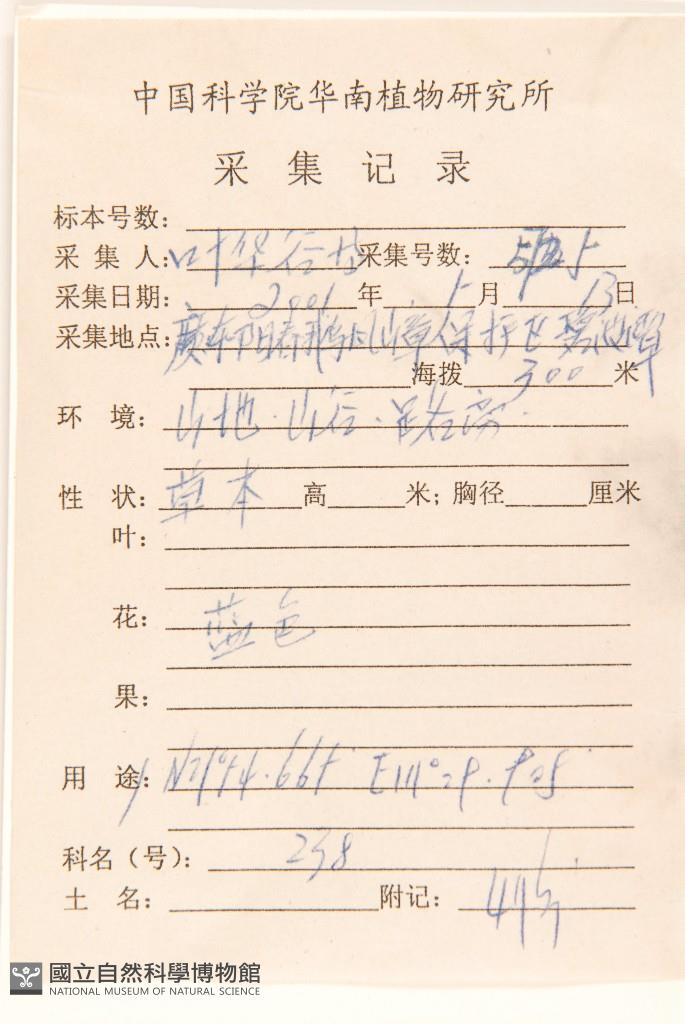 中国科学院华南植物研究所
采集记录
标本号数：
采集人：叶华谷 采集号数：
采集日期：2001年 月13日
采集地点：廣东阳春鹅凰嶂保护区
海拨300米
环境：山地·山谷·
性状：草本 高 米；胸径 厘米
叶：
花：蓝色
果：
用途：
科名（号）：238
土名： 附记：
國立自然科學博物館
NATIONAL MUSEUM OF NATURAL SCIENCE